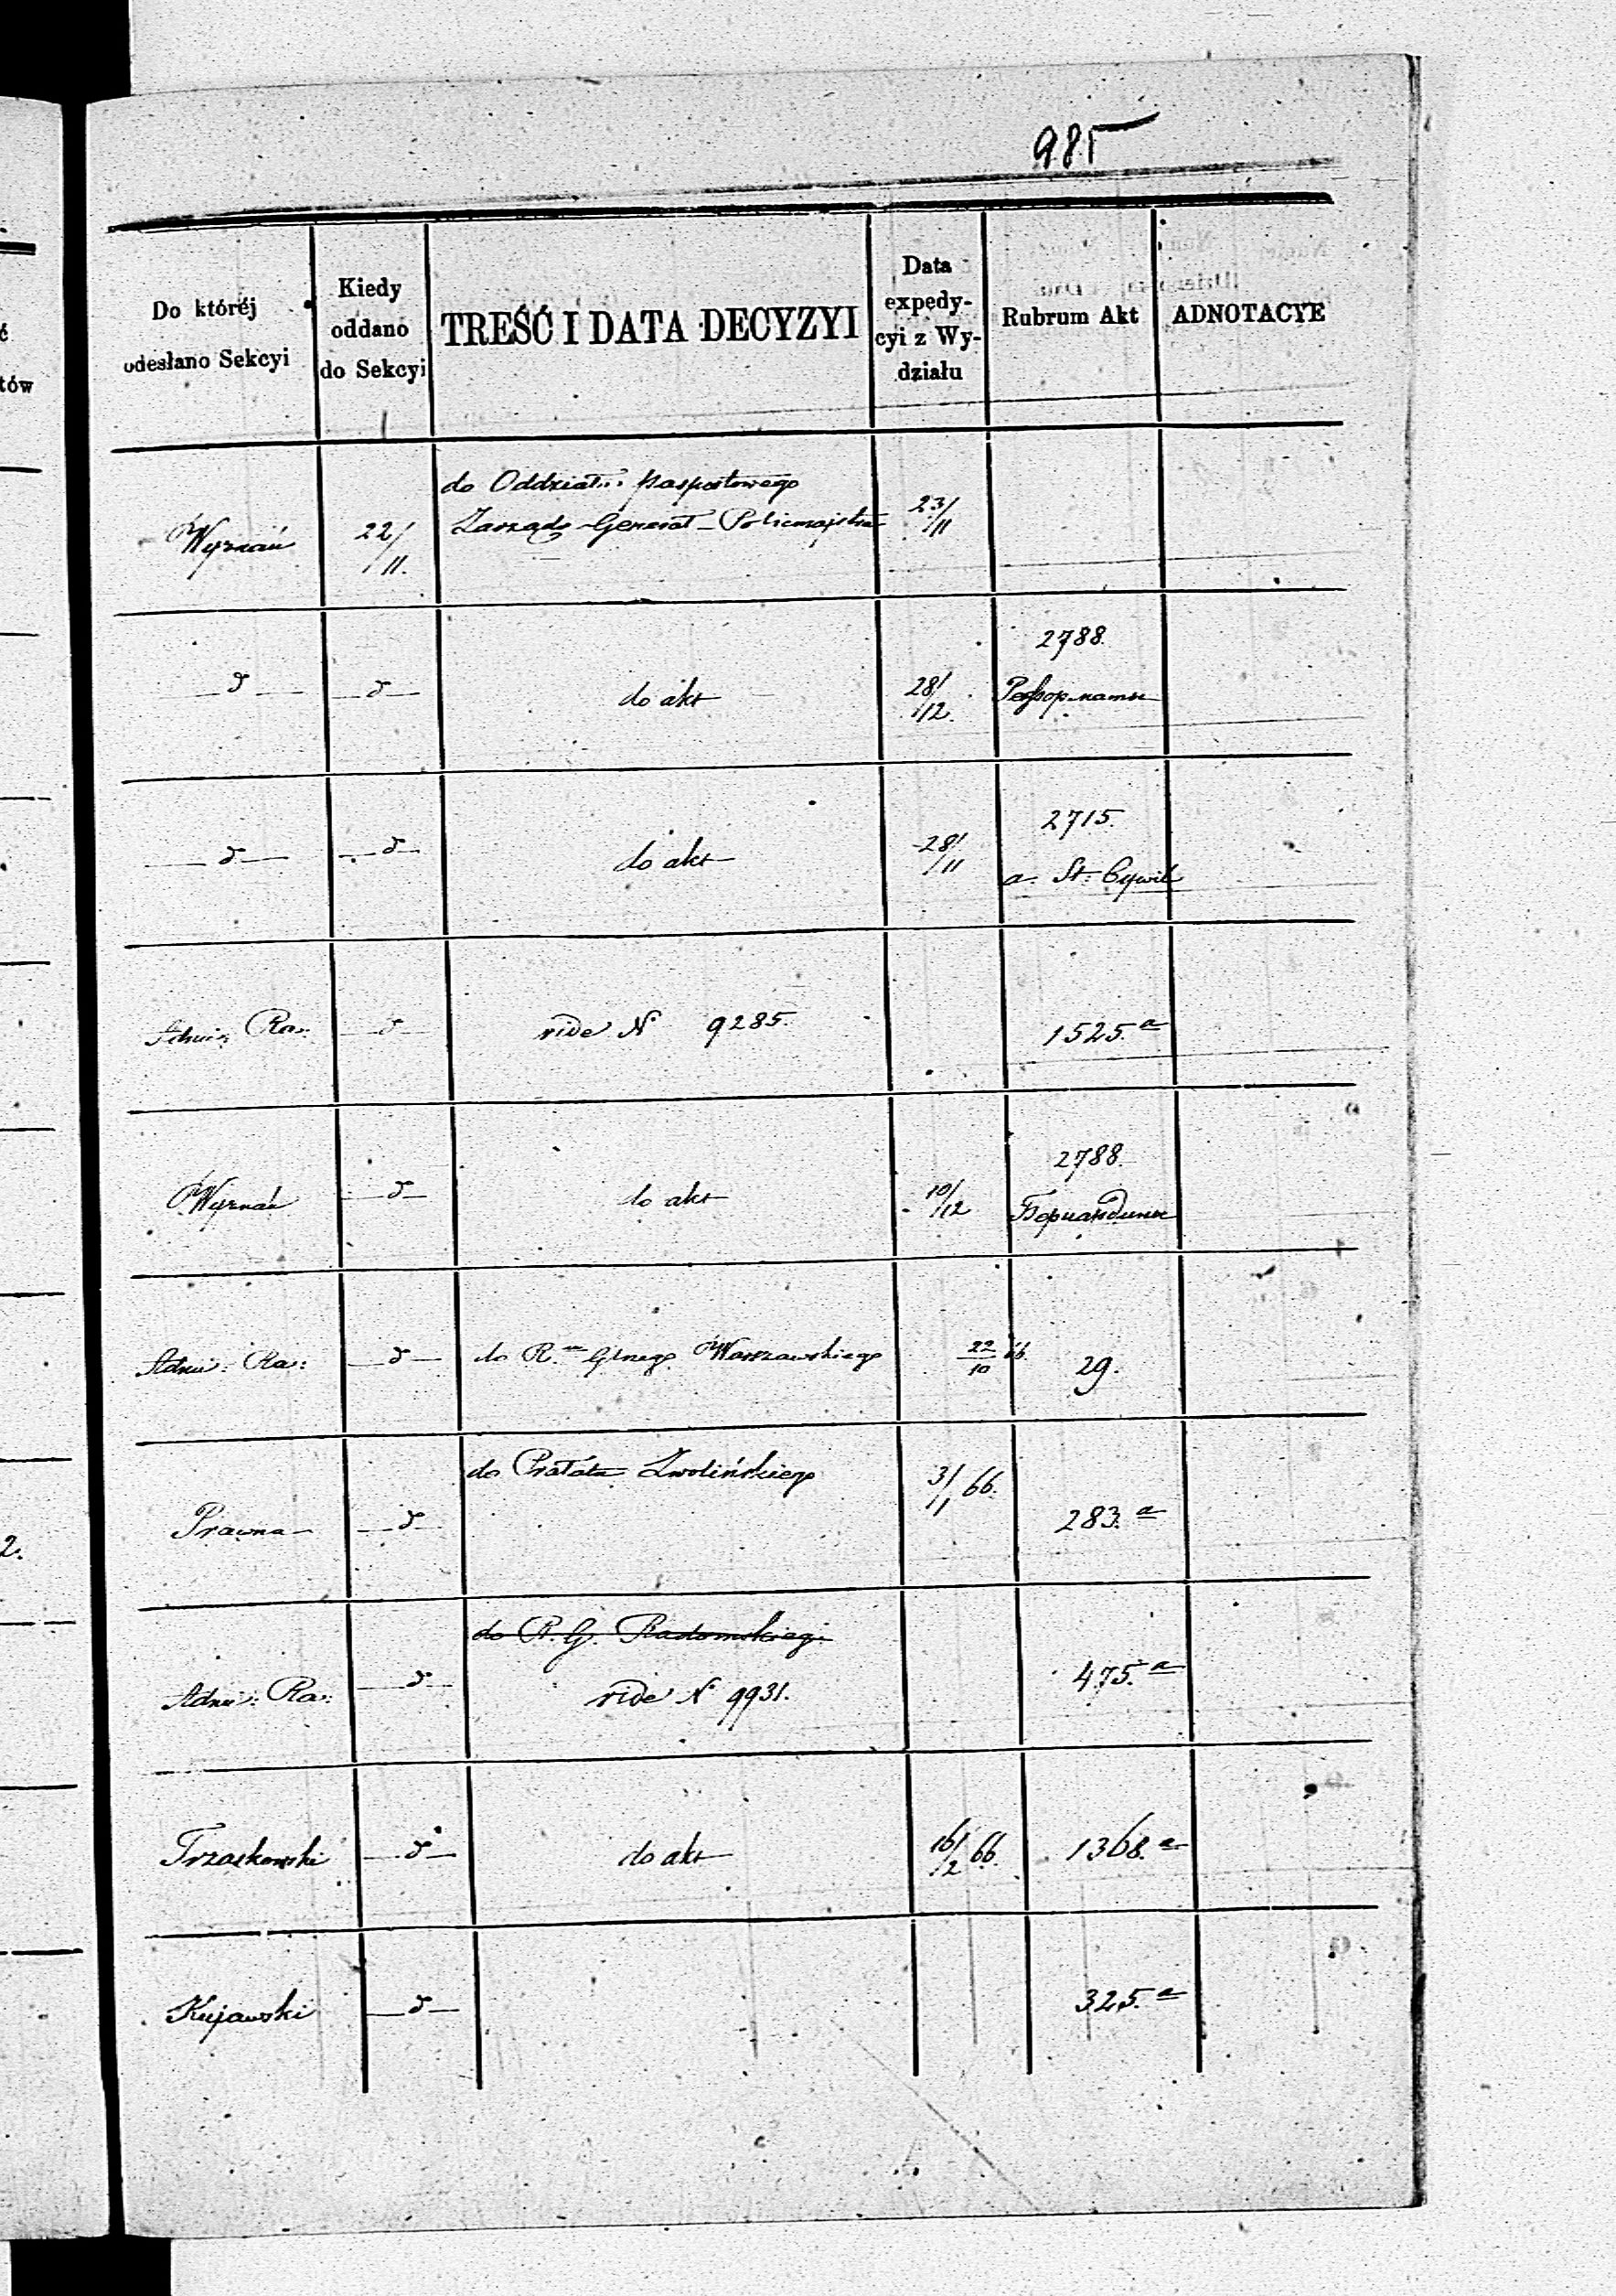 985
Do któréj odesłano Sekcyi
Kiedy oddano do Sekcyi
TREŚĆ I DATA DECYZYI
Data expedy-cyi z Wy-działu
Rubrum Akt
ADNOTACYE
Wyznań 22/11. do Oddziału paszportowego 23/11
Zarządu Generał-Policmajstra
2788.
—d— —d— do akt 28/12. Реформаты
2715.
—d— —d— do akt 28/11 a. St: Cywil
Admi: Ra: —d— vide N 9285. 1525.a
2788.
Wyznań —d— do akt 10/12 Бернардины
Admi: Ra: —d— do R. Glnego Warszawskiego 22/10 66. 29.
do Prałata Zwolińskiego 3/1 66.
Prawna —d— 283.a
do R. G. Radomskiego
Admi: Ra: —d— vide N 9931. 475.a
Trzaskowski —d— do akt 16/2 66. 1368.a
Kujawski —d— 325.a
ć
tów
2.